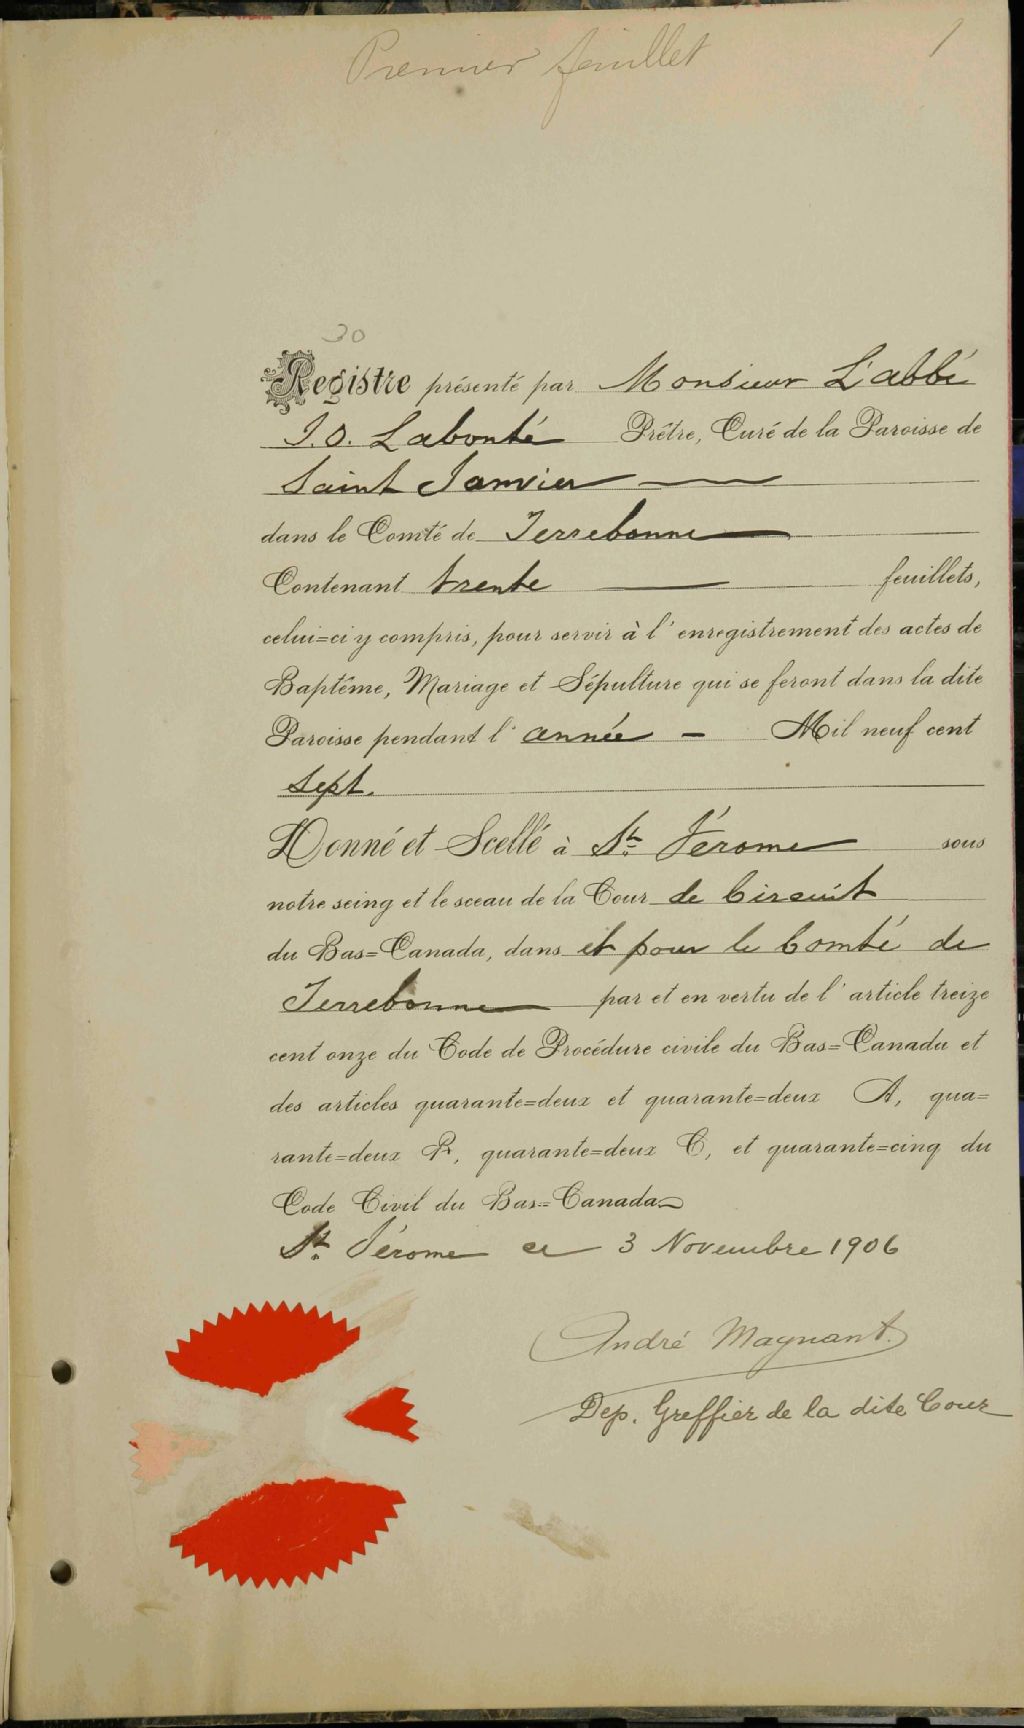 Premier feuillet 1
30
Registre présenté par Monsieur L'abbé
J.O. Labonté Prêtre, Curé de la Paroisse de
Saint Janvier
dans le Comté de Terrebonne
Contenant trente feuillets,
celui=ci y compris, pour servir à l'enregistrement des actes de
Baptême, Mariage et Sépulture qui se feront dans la dite
Paroisse pendant l'année – Mil neuf cent
sept.
Donné et Scellé à St. Jérome sous
notre seing et le sceau de la Cour de Circuit
du Bas=Canada, dans et pour le Comté de
Terrebonne par et en vertu de l'article treize
cent onze du Code de Procédure civile du Bas=Canada et
des articles quarante=deux et quarante=deux A, qua=
rante=deux B, quarante=deux C, et quarante=cinq du
Code Civil du Bas=Canada
St. Jérome ce 3 Novembre 1906
André Magnant.
Dep. Greffier de la dite Cour